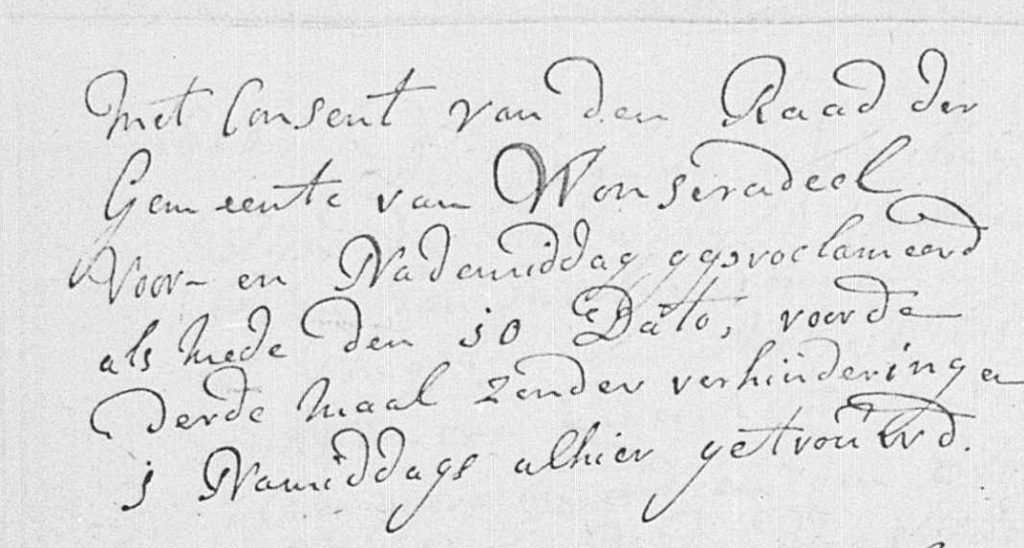 Met Consent van den Raad der
Gemeente van Wonseradeel
Voor- en Nademiddag geproclameerd
als mede den 10 Dato, voor de
derde maal zonder verhinderinge
s Namiddags alhier getrouwd.